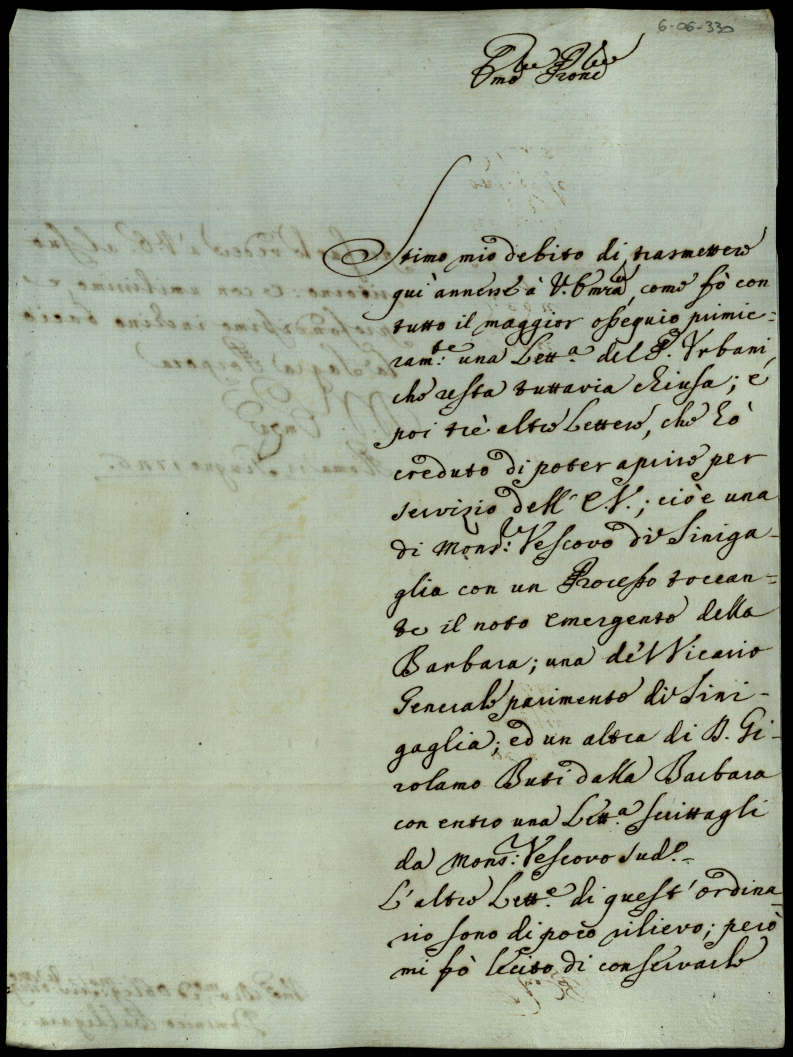 6-06-330
Em̃o Prone
Stimo mio debito di trasmettere
quì annesse à V. Em̃za, come fò con
tutto il maggior ossequio primie=
ram.te una Lett.a del P. Vrbani,
che resta tuttavia chiusa; e
poi trè altre Lettere, che hò
creduto di poter aprire per
servizio dell' E.V.; cióè una
di Mons.r Vescovo di Siniga-
glia con un Processo toccan=
te il noto emergente della
Barbara; una del Vicario
Generale parimente di Sini-
gaglia; ed un altra di D. Gi-
rolamo Buti dalla Barbara
con entro una Lett.a scrittagli
da Mons.r Vescovo sud.o
L'altre Lett.e di quest' ordina-
rio sono di poco rilievo; però
mi fò lecito di conservarle